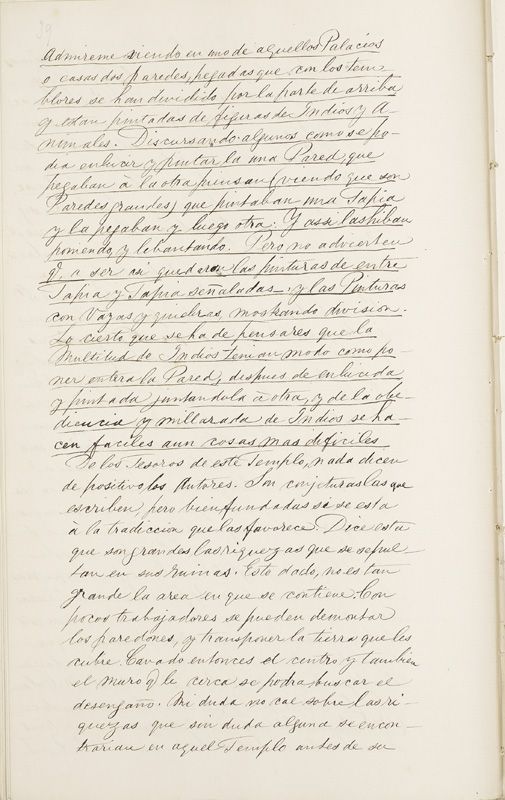 39
Admireme viendo en uno de aquellos Palacios
o casas dos paredes, pegadas que con los tem-
blores se han dividido por la parte de arriba
q estan pintadas de figuras de Indios y A-
nimales. Discursando algunos como se po-
dia enlucir y pintar la una Pared, que
pegaban à la otra piensan (viendo que son
Paredes grandes) que pintaban una Tapia
y la pegaban y luego otra: Y assi las hiban
poniendo, y lebantando. Pero no advierten
q. a ser asi quedaron las pinturas de entre
Tapia y Tapia señaladas, y las Pinturas
con Vazas y quiebras, mostrando division.
Lo cierto que se ha de pensar es que la
Multitud de Indios tenian modo como po-
ner entera la Pared, despues de enlucida
y pintada juntandola à otra, y de la obe-
diencia y millarada de Indios se ha-
cen faciles aun cosas mas dificiles
De los Tesoros de este Templo, nada dicen
de positivo los Autores. Son conjeturas las que
escriben, pero bien fundadas si se esta
à la tradiccion que las favorece. Dice esta
que son grandes las riquezas que se sepul-
tan en sus ruinas. Esto dado, no es tan
grande la area en que se contiene. Con
pocos trabajadores se pueden demontar
los paredones, y transponer la tierra que les
cubre. Cavado entonces el centro y tambien
el muro q le cerca se podra, buscar el
desengaño. Mi duda no cae sobre las ri-
quezas que sin duda alguna se encon-
trarian en aquel Templo antes de su